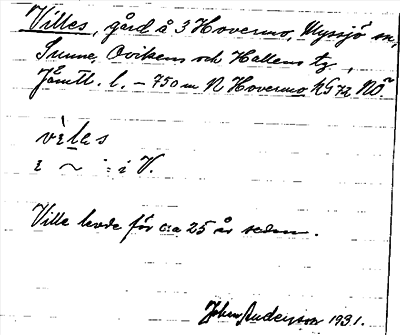 Villes, gård å 3 Hovermo, Myssjö sn,
Sunne, Ovikens och Hallens tg,
Jämtl. l. – 750 m N Hovermo KG 72 NÖ
vìles
i ~ : i V.
Ville levde för c:a 25 år sedan.
John Anderson 1931.